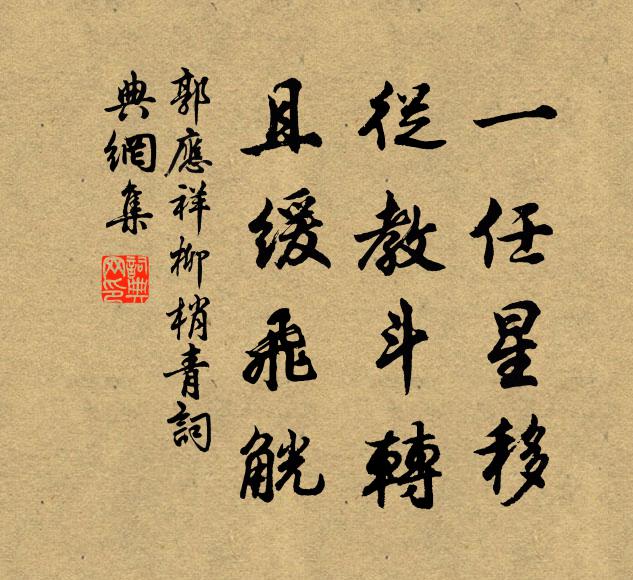 一任星移
從教斗轉
且緩飛觥
郭應祥柳梢青詞
典網集
詞典网印